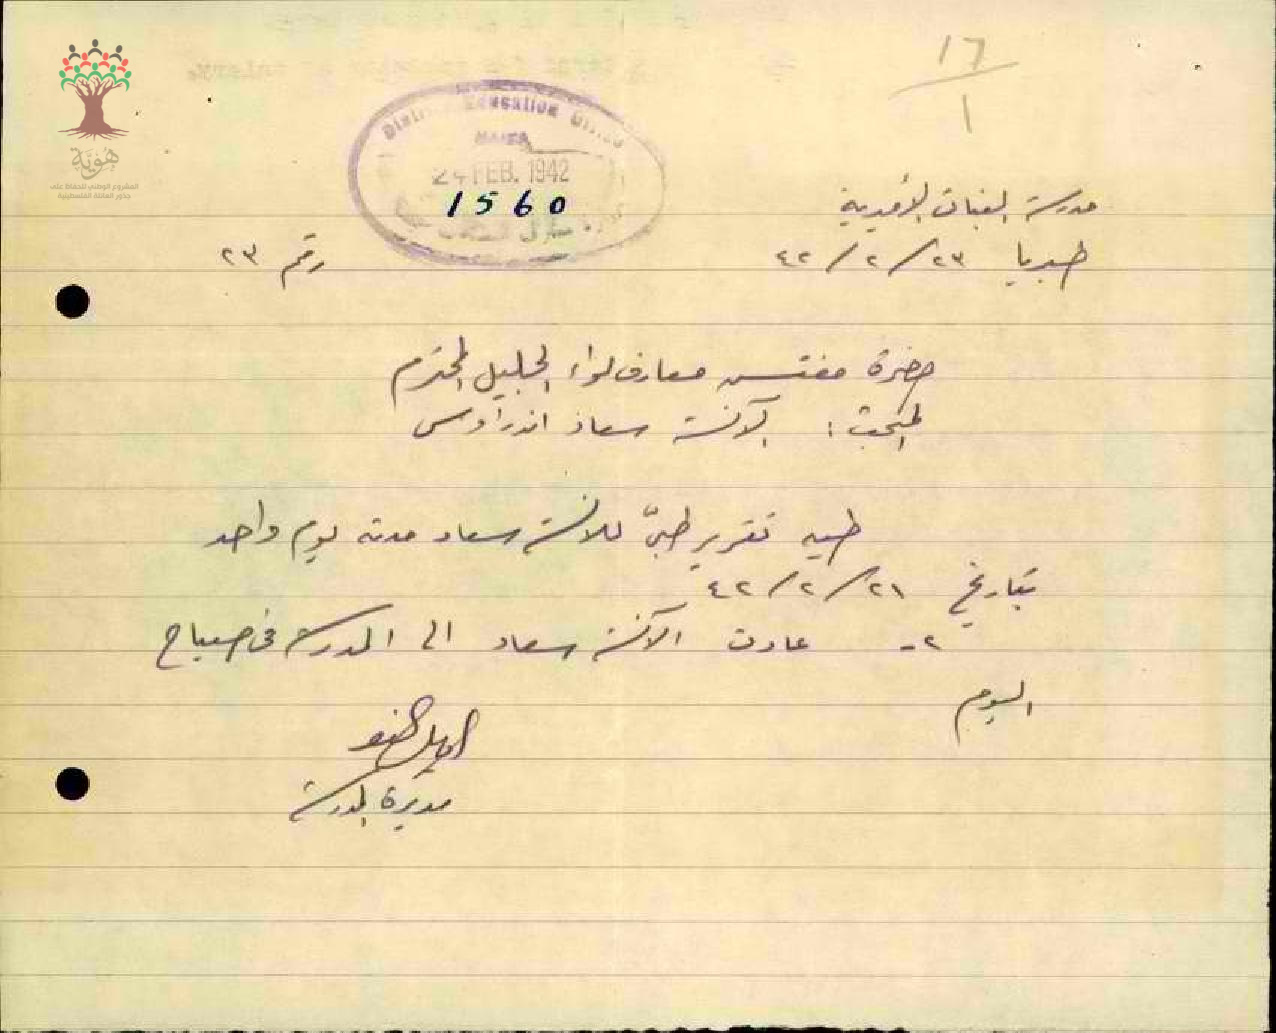 17
1
هوية
المشروع الوطني للحفاظ على
جذور العائلة الفلسطينية
District Education Office
HAIFA
24 FEB. 1942
1560
مدرسة البنات الأميرية
طبريا ٢٣/٢/٤٢ رقم ٢٣
حضرة مفتش معارف لواء الجليل المحترم
المبحث: الآنسة سعاد اندراوس
طيه تقرير طبيّ للآنسة سعاد مدته يوم واحد
بتاريخ ٢١/٢/٤٢
٢- عادت الآنسة سعاد الى المدرسة في صباح
اليوم
مديرة المدرسة